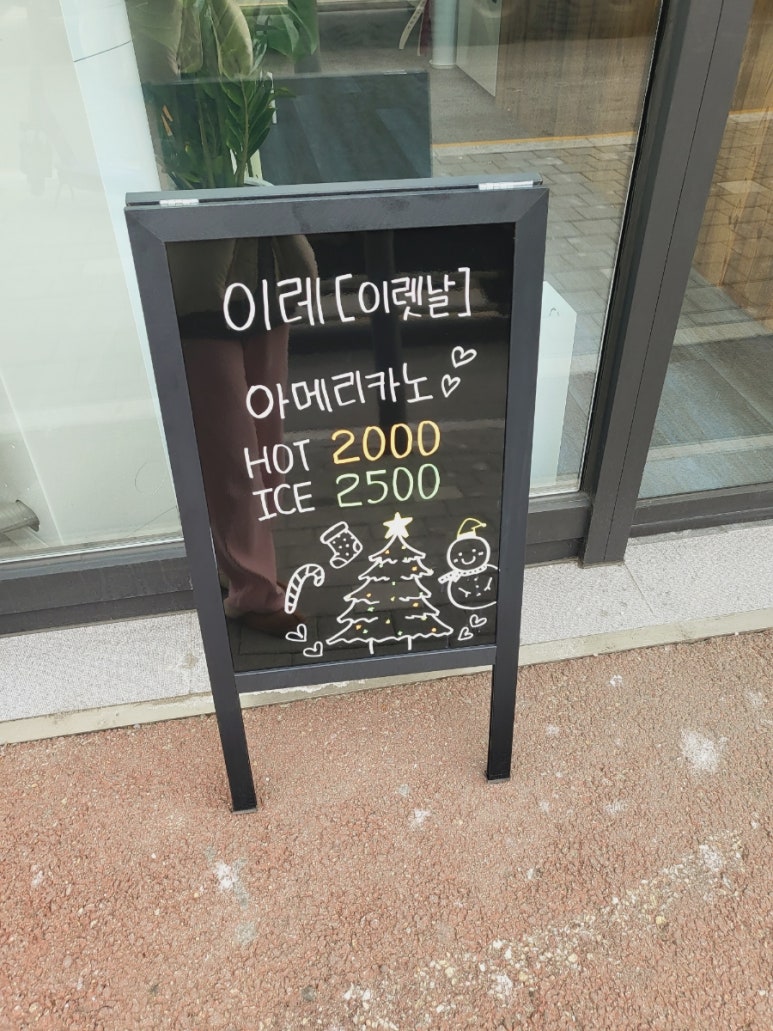 이레[이렛날]
아메리카노
HOT 2000
ICE 2500